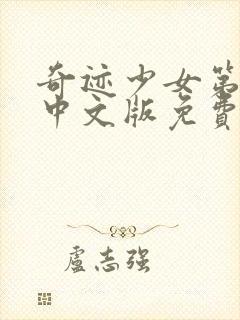 奇迹少女第
中文版免费
卢志强